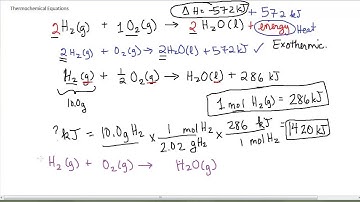 Thermochemical Equations
ΔH = -572 kJ
2H₂(g) + 1O₂(g) → 2H₂O(l) + energy +572 kJ
Heat
2H₂(g) + O₂(g) → 2H₂O(l) + 572 kJ ✓ Exothermic.
H₂(g) + ½ O₂(g) → H₂O(l) + 286 kJ
10.0g
1 mol H₂(g) = 286 kJ
? kJ = 10.0g H₂ × 1 mol H₂ / 2.02 g H₂ × 286 kJ / 1 mol H₂ = 1420 kJ
H₂(g) + O₂(g) → H₂O(g)